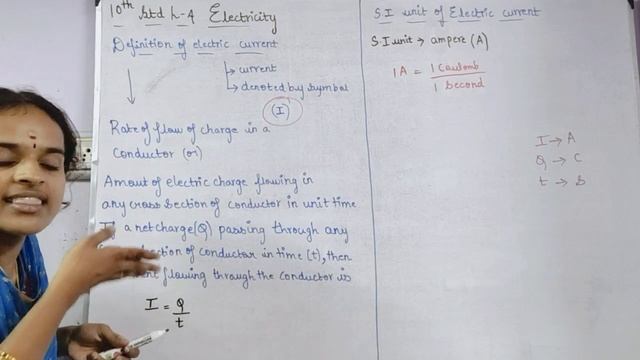 10th Std L-4 Electricity
Definition of electric current
→ current
→ denoted by symbol
(I)
Rate of flow of charge in a
conductor (or)
Amount of electric charge flowing in
any cross section of conductor in unit time
If a net charge (Q) passing through any
section of conductor in time (t), then
flowing through the conductor is
I = Q
t
S.I unit of Electric current
S.I unit → ampere (A)
1A = 1 Coulomb
1 Second
I → A
Q → C
t → s